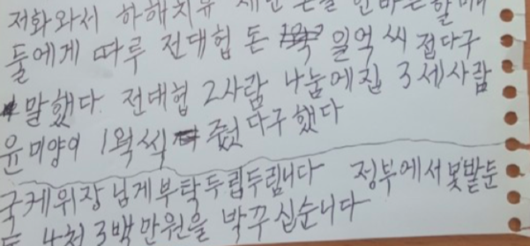 저화와서 하해치유 재단 돈을 안바든할매
들에게 따루 전대협 돈 일억 씨 접다구
말했다 전대협 2사람 나눔에집 3세사람
윤미양이 1웍씩 줬다구했다
국케위장님게부탁두립두립니다 정부에서못받둔
돈 4천3백만원을 박꾸십순니다